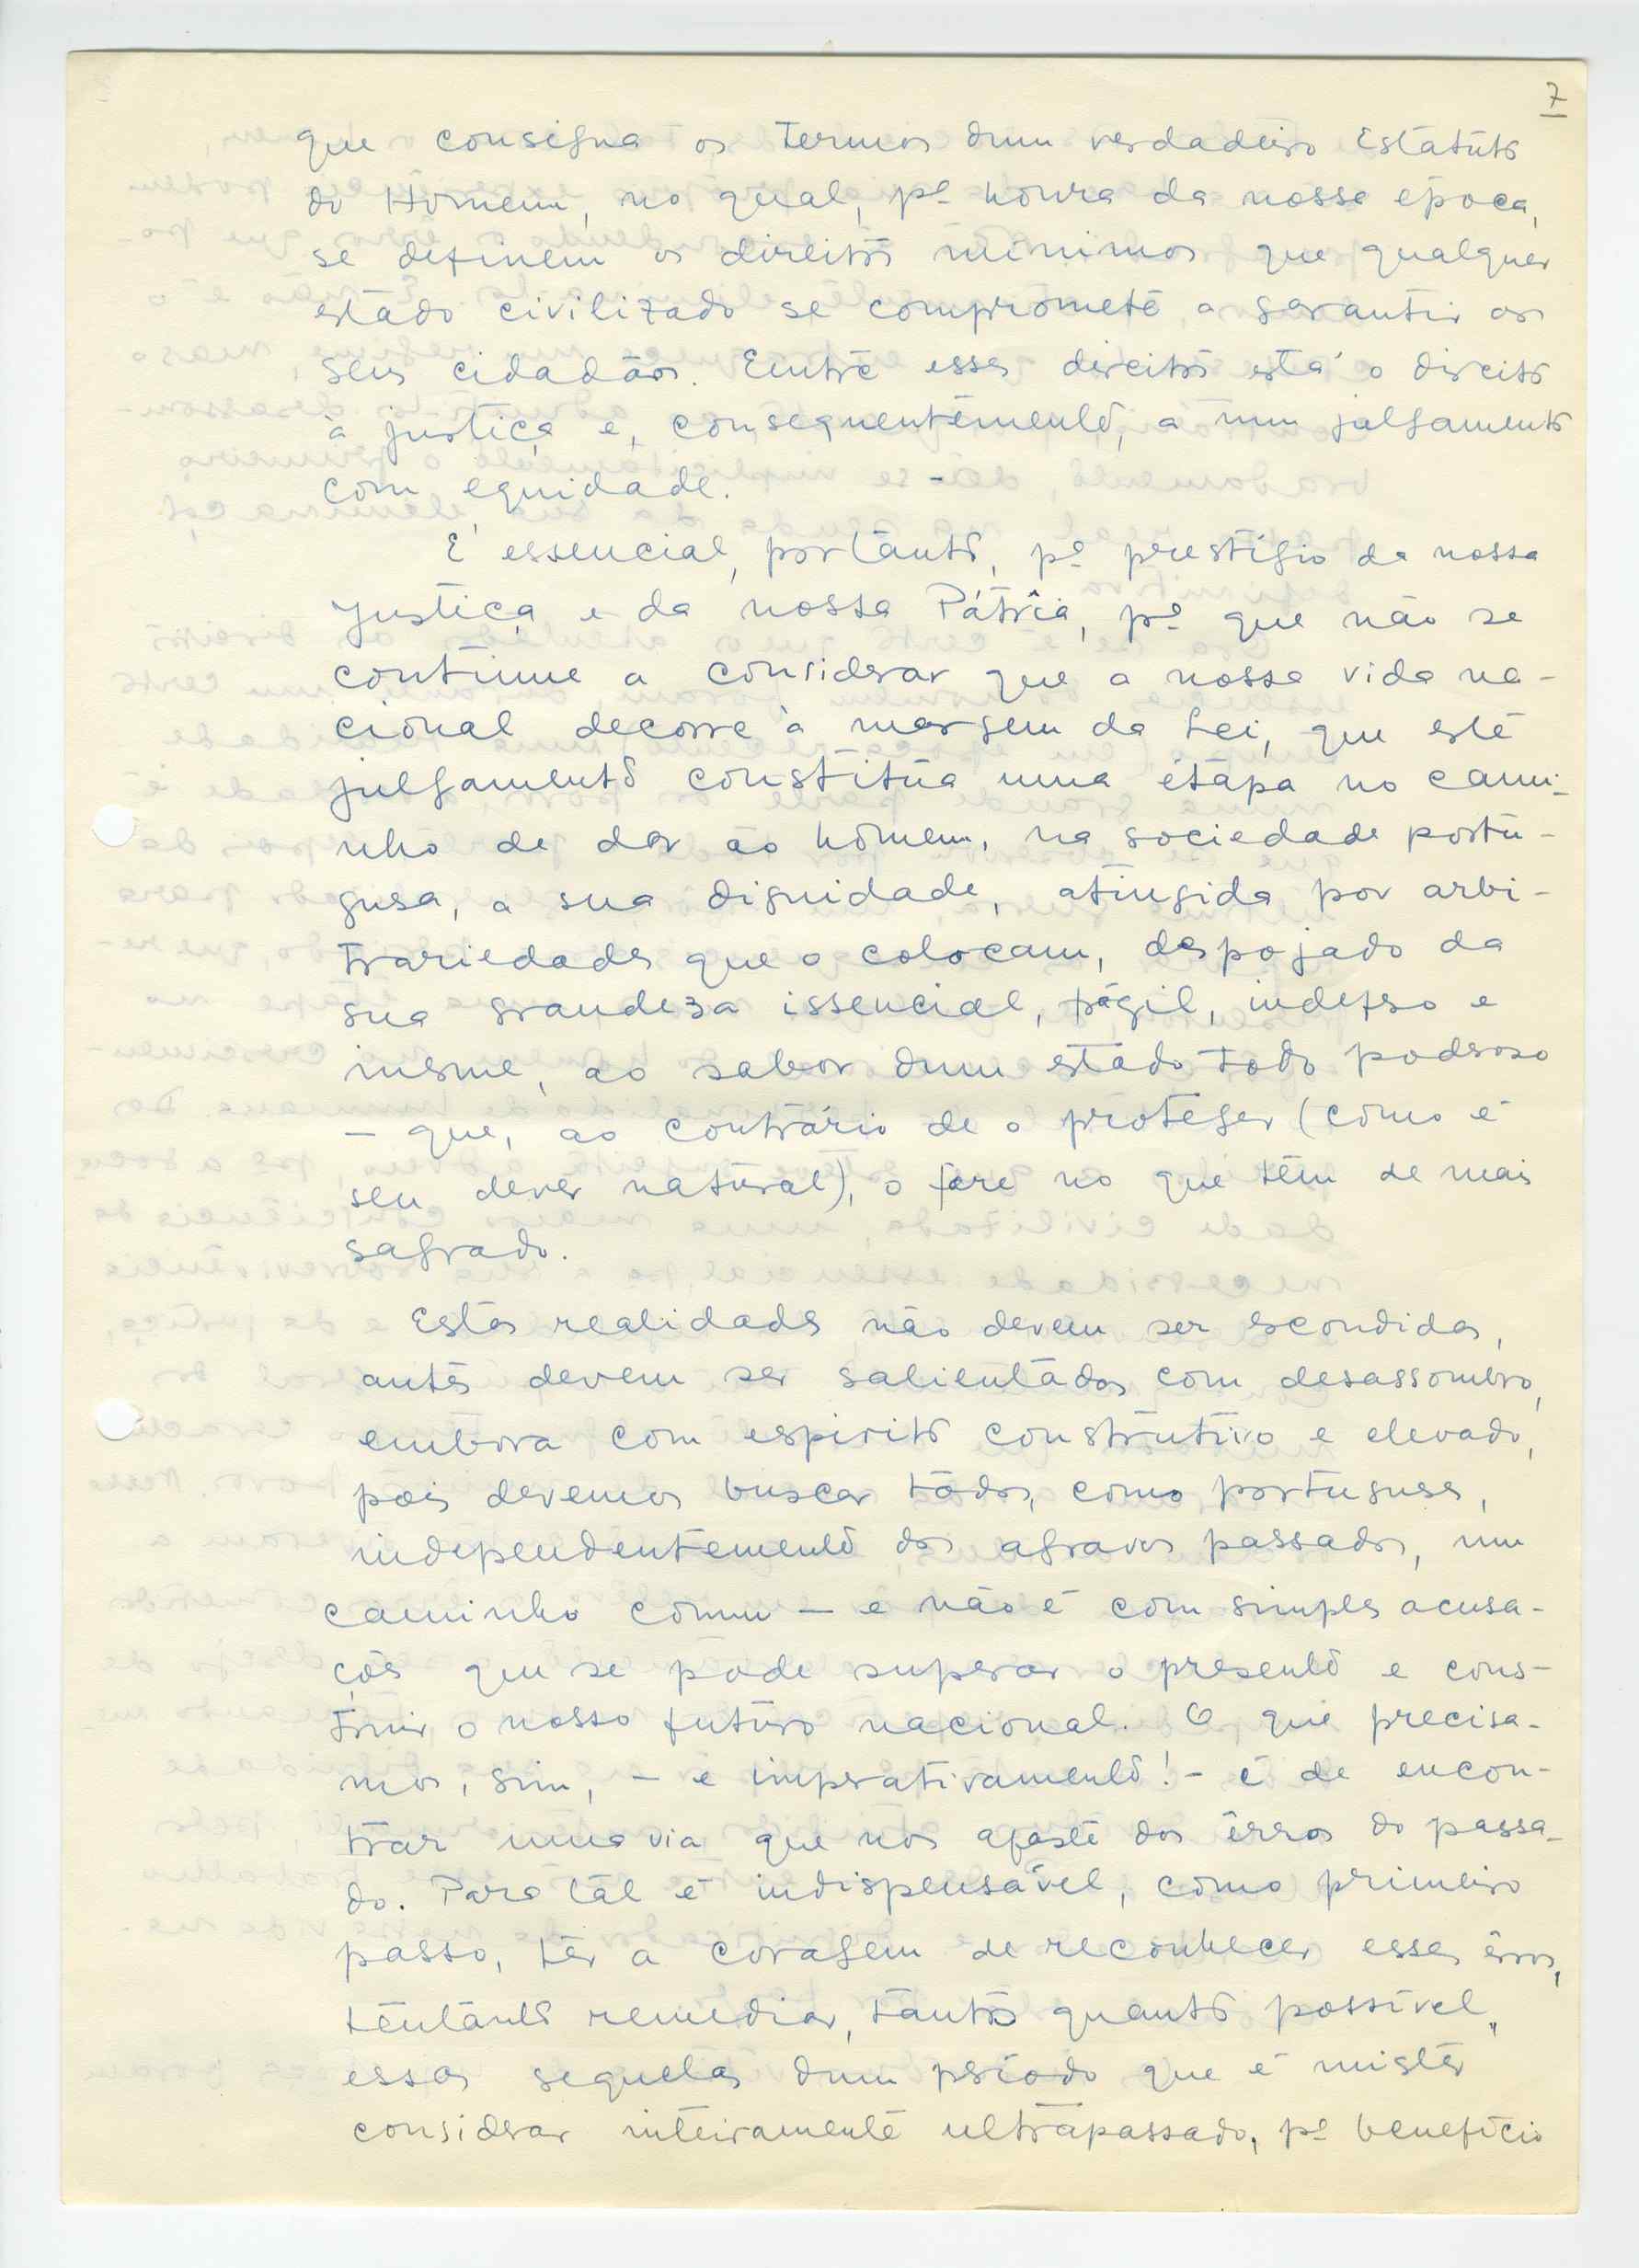 7
que consigna os termos dum verdadeiro Estatuto
do Homem, no qual, pª honra da nossa época,
se definem os direitos minimos que qualquer
estado civilizado se compromete a garantir aos
seus cidadãos. Entre esses direitos está o direito
à justiça e, consequentemente, a um julgamento
com equidade.
É essencial, portanto, pª prestígio da nossa
Justiça e da nossa Pátria, pª que não se
continue a considerar que a nossa vida na-
cional decorre à margem da Lei, que este
julgamento constitua uma étapa no cami-
nho de dar ao homem, na sociedade portu-
guesa, a sua dignidade, atingida por arbi-
trariedades que o colocam, despojado da
sua grandeza issencial, frágil, indefeso e
inerme, ao sabor dum estado todo poderoso
- que, ao contrário de o proteger (como é
seu dever natural), o fere no que têm de mais
sagrado.
Estas realidades não devem ser escondidas,
antes devem ser salientados com desassombro,
embora com espirito construtivo e elevado,
pois devemos buscar todos, como portugueses,
independentemente dos agravos passados, um
caminho comum - e não é com simples acusa-
ções que se pode superar o presente e cons-
truir o nosso futuro nacional. O que precisa-
mos, sim, - e imperativamente! - é de encon-
trar uma via que nos afaste dos êrros do passa-
do. Para tal é indispensável, como primeiro
passo, ter a coragem de reconhecer esses êrros,
tentando remediar, tanto quanto possível,
essas sequelas dum período que é mister
considerar inteiramente ultrapassado, pª benefício